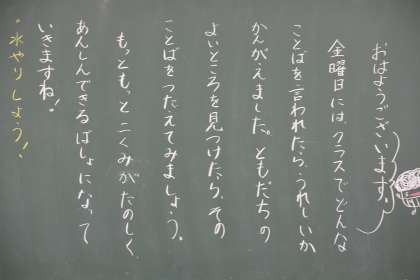 おはようございます。
金曜日には、クラスでどんな
ことばを言われたら、うれしいか
かんがえました。ともだちの
よいところを見つけたら、その
ことばをつたえてみましょう。
もっともっと二くみがたのしく、
あんしんできるばしょになって
いきますね！
・水やりしよう！